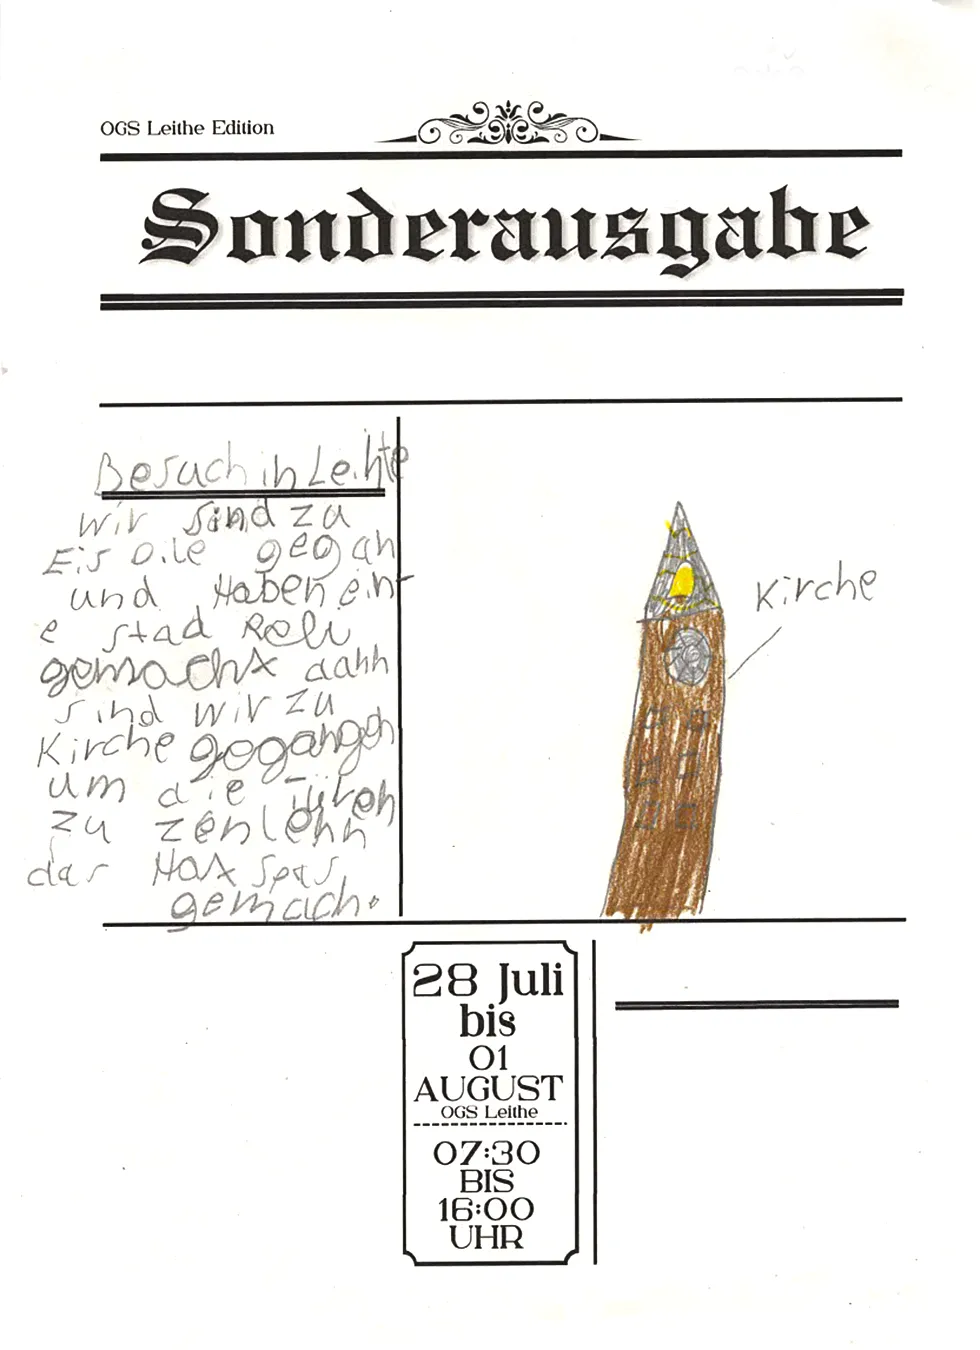 OGS Leithe Edition
Sonderausgabe
Besuch in Leihte
wir sind zu
Eis Dile gegan
und Haben ein-
e stad Reli
gemacht dahn
sind wir zu
Kirche gegangen
um die Türen
zu zenlenn
das Hat Spas
gemach.
Kirche
28 Juli
bis
01
AUGUST
OGS Leithe
07:30
BIS
16:00
UHR